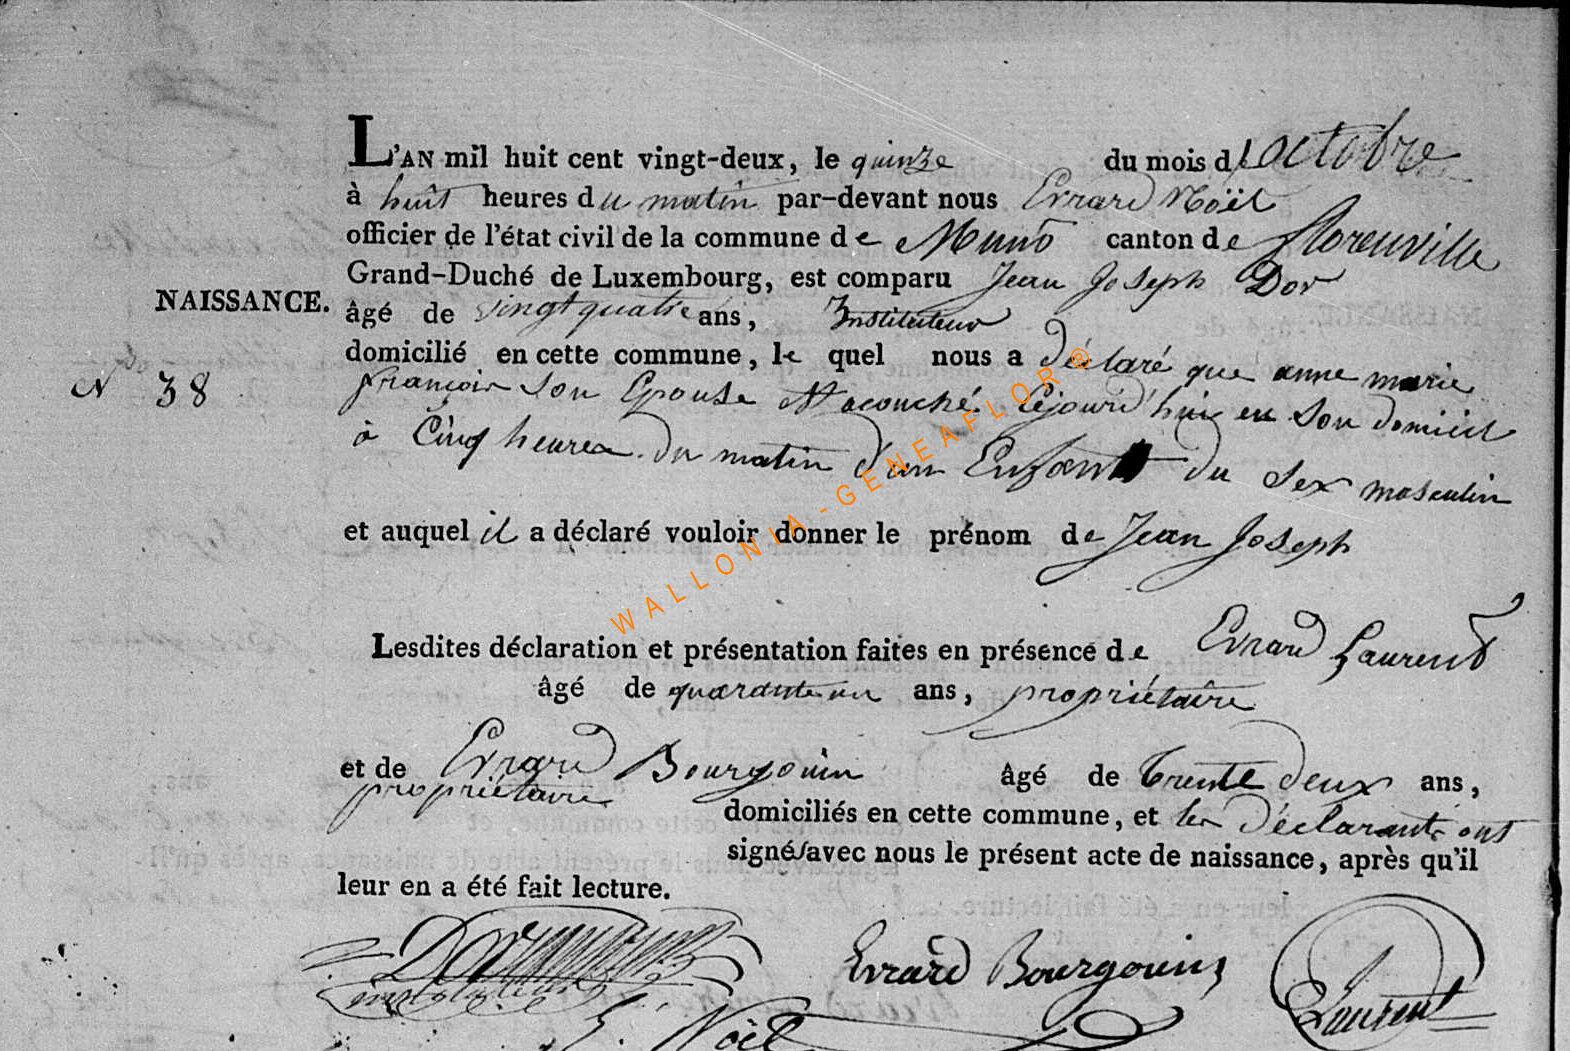 L'AN mil huit cent vingt-deux, le quinze du mois d'octobre
à huit heures du matin par-devant nous Evrard Noël
officier de l'état civil de la commune de Muno canton de florenville
Grand-Duché de Luxembourg, est comparu Jean Joseph Dor
NAISSANCE.
âgé de vingt quatre ans, Instituteur
domicilié en cette commune, le quel nous a déclaré que anne marie
N 38
françois son Epouse acouché cejourd'hui en son domicil
à Cinq heures du matin d'un Enfant du sex masculin
et auquel il a déclaré vouloir donner le prénom de Jean Joseph
Lesdites déclaration et présentation faites en présence de Evrard Laurent
âgé de quarante un ans, propriétaire
et de Evrard Bourgouin âgé de trente deux ans,
propriétaire
domiciliés en cette commune, et les déclarants ont
signé avec nous le présent acte de naissance, après qu'il
leur en a été fait lecture.
Dor
Evrard Bourgouin
instituteur
E Laurent
E. Noël
WALLONIA-GENEAFLOR®